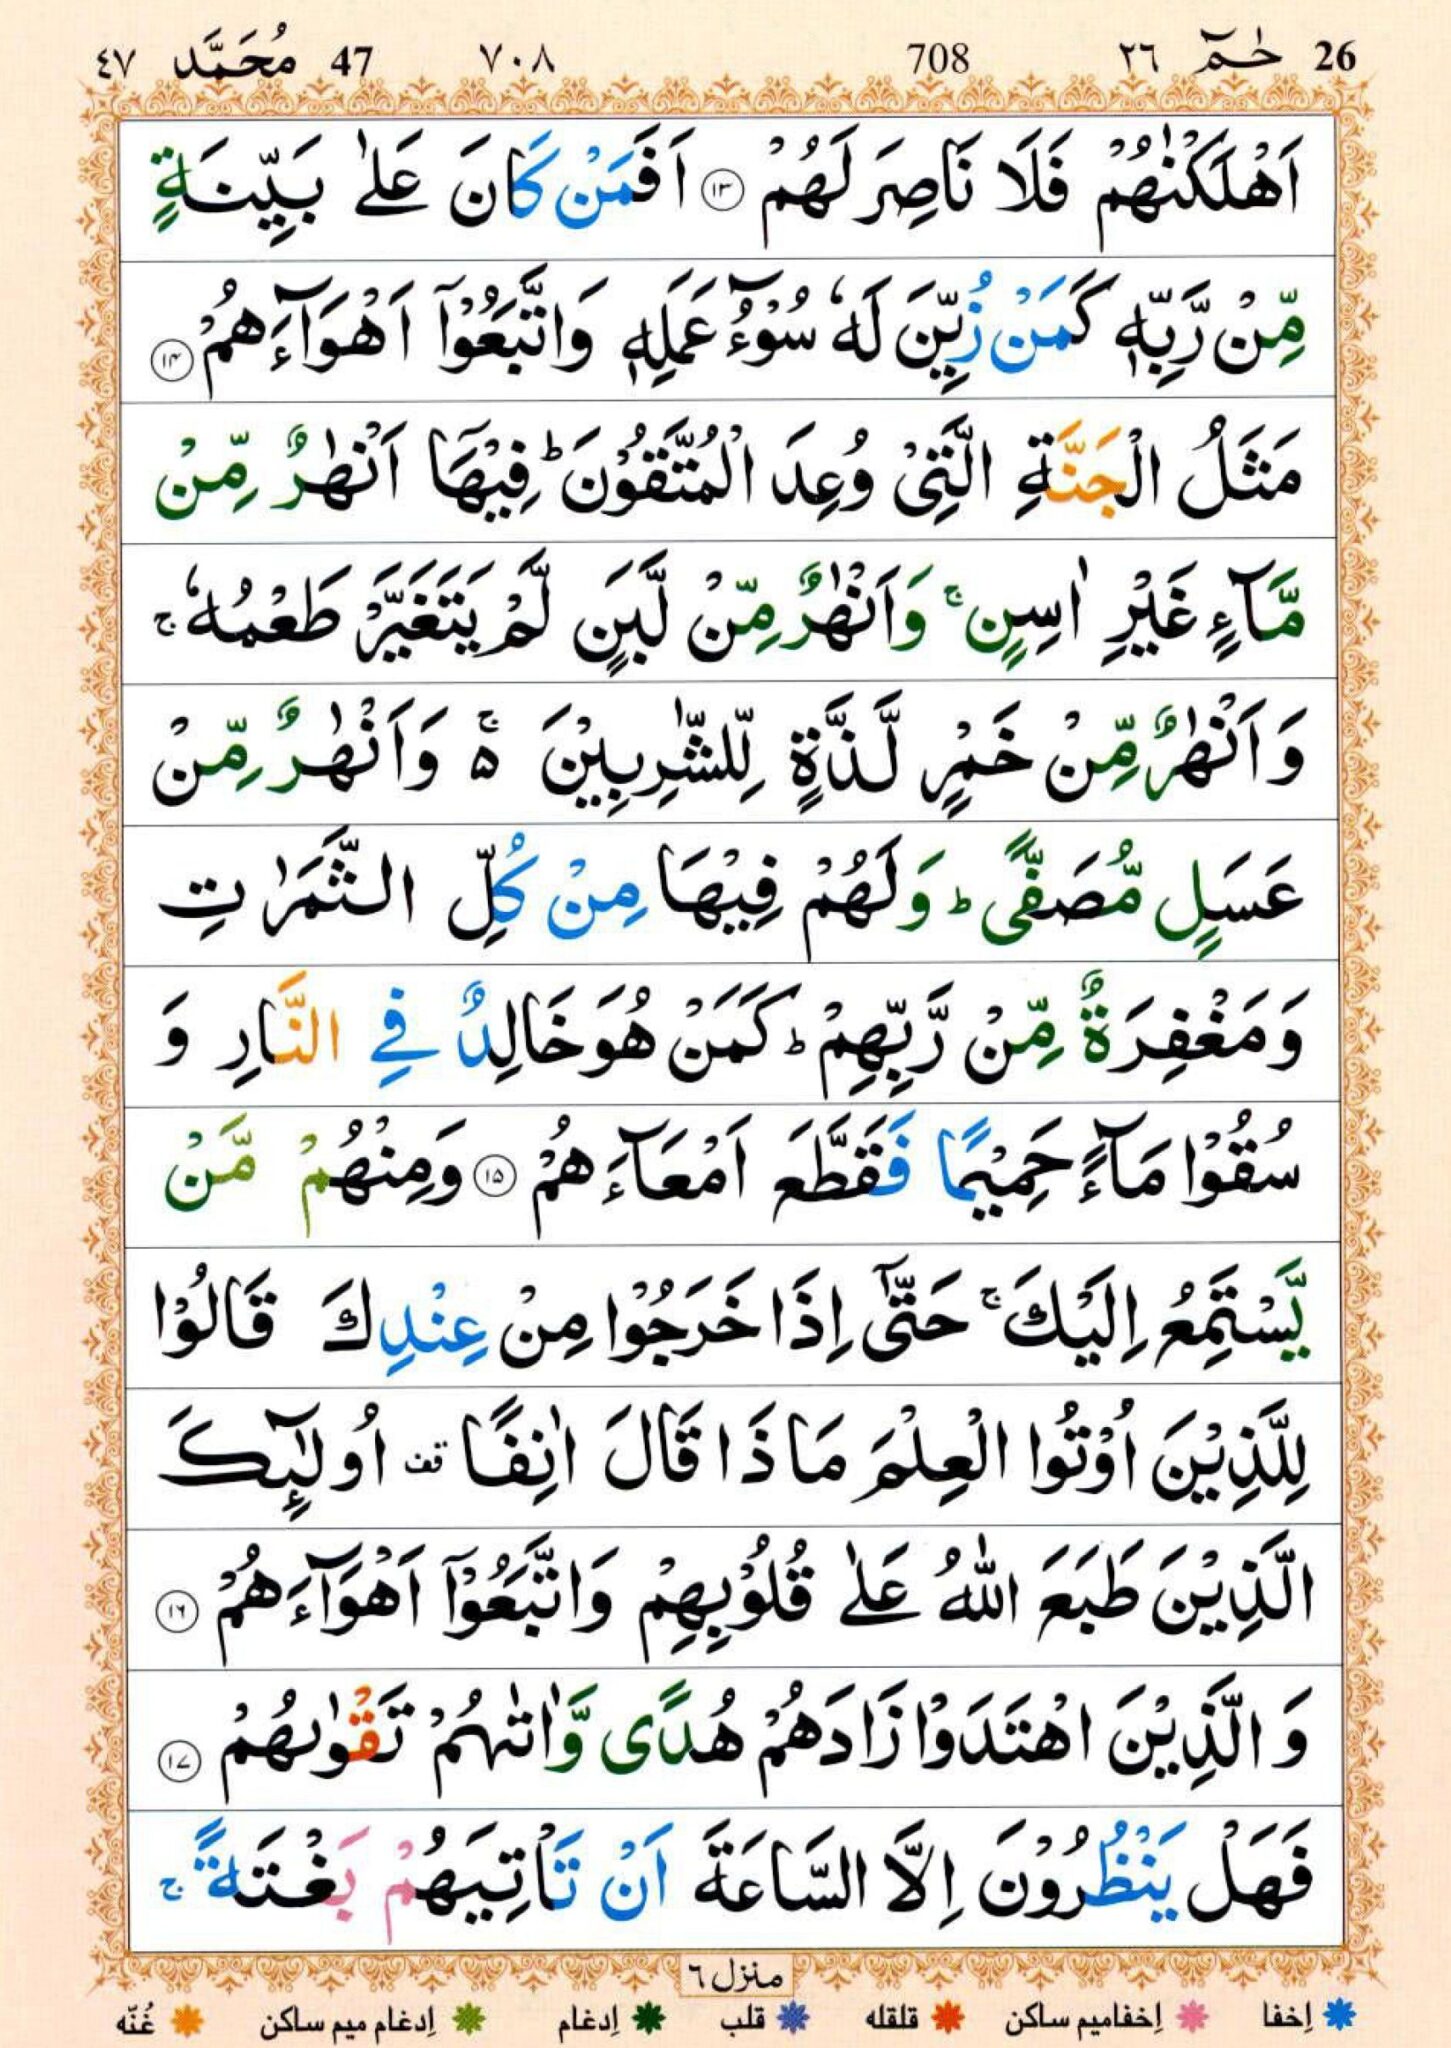 26 حٰمٓ ٢٦ 708 ٧٠٨ 47 مُحَمَّد ٤٧
اَهْلَكْنٰهُمْ فَلَا نَاصِرَ لَهُمْ ۝۱۳ اَفَمَنْ كَانَ عَلٰى بَيِّنَةٍ
مِّنْ رَّبِّهٖ كَمَنْ زُيِّنَ لَهٗ سُوْٓءُ عَمَلِهٖ وَاتَّبَعُوْٓا اَهْوَآءَهُمْ ۝۱۴
مَثَلُ الْجَنَّةِ الَّتِىْ وُعِدَ الْمُتَّقُوْنَ ؕ فِيْهَآ اَنْهٰرٌ مِّنْ
مَّآءٍ غَيْرِ اٰسِنٍ ۚ وَاَنْهٰرٌ مِّنْ لَّبَنٍ لَّمْ يَتَغَيَّرْ طَعْمُهٗ ۚ
وَاَنْهٰرٌ مِّنْ خَمْرٍ لَّذَّةٍ لِّلشّٰرِبِيْنَ ۵ۚ وَاَنْهٰرٌ مِّنْ
عَسَلٍ مُّصَفًّى ؕ وَلَهُمْ فِيْهَا مِنْ كُلِّ الثَّمَرٰتِ
وَمَغْفِرَةٌ مِّنْ رَّبِّهِمْ ؕ كَمَنْ هُوَ خَالِدٌ فِى النَّارِ وَ
سُقُوْا مَآءً حَمِيْمًا فَقَطَّعَ اَمْعَآءَهُمْ ۝۱۵ وَمِنْهُمْ مَّنْ
يَّسْتَمِعُ اِلَيْكَ ۚ حَتّٰٓى اِذَا خَرَجُوْا مِنْ عِنْدِكَ قَالُوْا
لِلَّذِيْنَ اُوْتُوا الْعِلْمَ مَاذَا قَالَ اٰنِفًا قف اُولٰٓئِكَ
الَّذِيْنَ طَبَعَ اللّٰهُ عَلٰى قُلُوْبِهِمْ وَاتَّبَعُوْٓا اَهْوَآءَهُمْ ۝۱۶
وَالَّذِيْنَ اهْتَدَوْا زَادَهُمْ هُدًى وَّاٰتٰٮهُمْ تَقْوٰٮهُمْ ۝۱۷
فَهَلْ يَنْظُرُوْنَ اِلَّا السَّاعَةَ اَنْ تَاْتِيَهُمْ بَغْتَةً ۚ
منزل ٦
اِخفا اِخفامیم ساکن قلقله قلب اِدغام اِدغام میم ساکن غُنّه